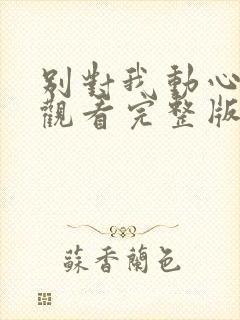 別對我動心
觀看完整版
蘇香蘭色